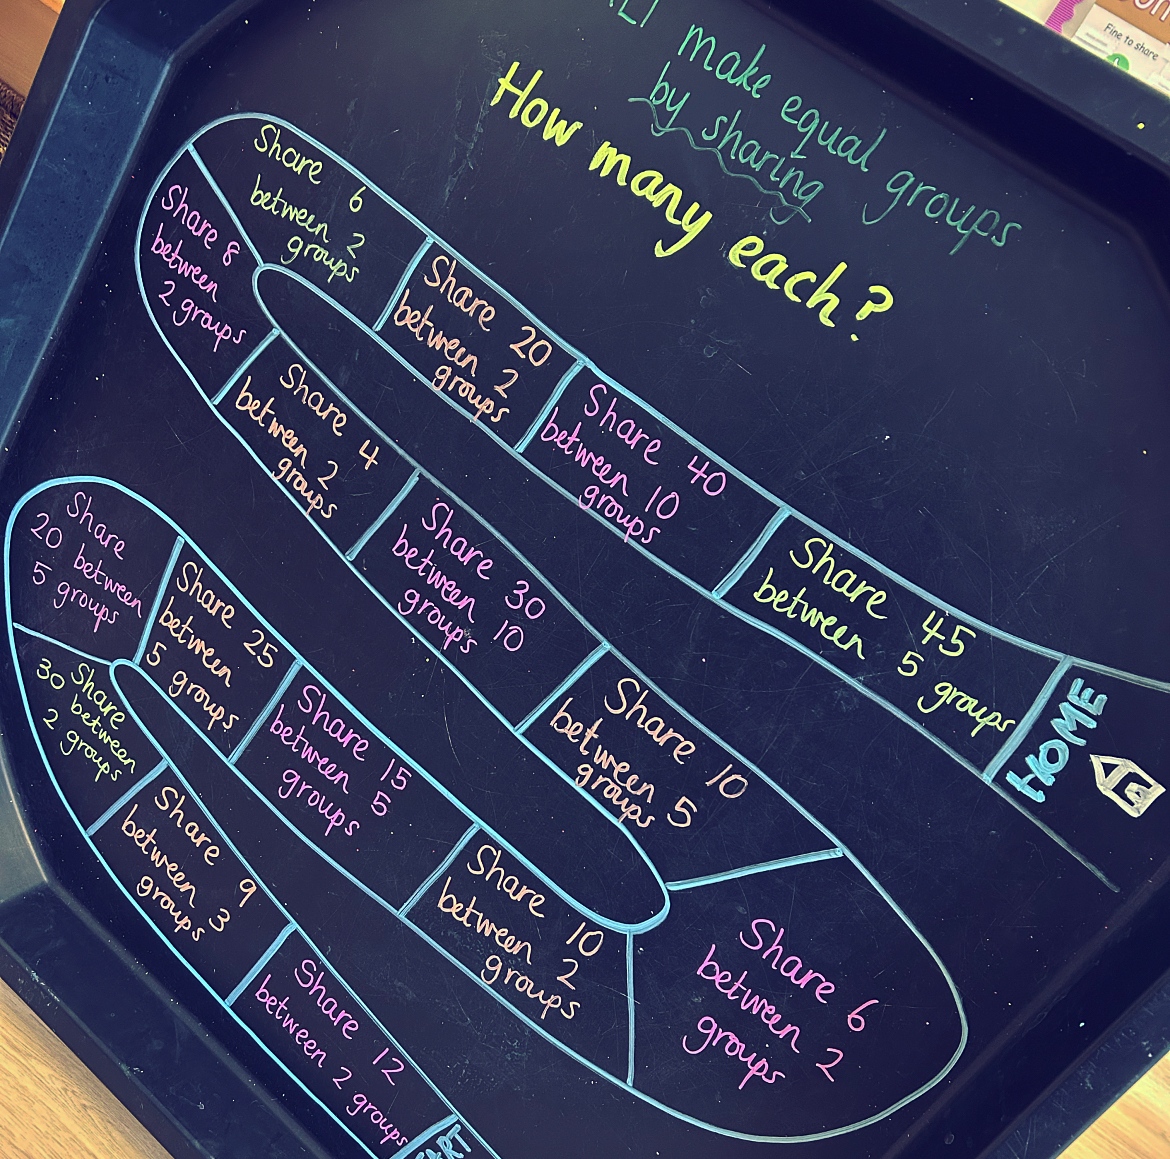 make equal groups
by sharing
How many each?
Share 6
between 2
groups
Share 20
between 2
groups
Share 40
between 10
groups
Share 45
between 5 groups
HOME
Share 8
between
2 groups
Share 4
between 2
groups
Share 30
between 10
groups
Share 10
between 5
groups
Share 6
between 2
groups
Share
20 between
5 groups
Share 25
between
5 groups
Share 15
between 5
groups
Share 10
between 2
groups
Share
30 between
2 groups
Share 9
between 3
groups
Share 12
between 2 groups
Fine to share